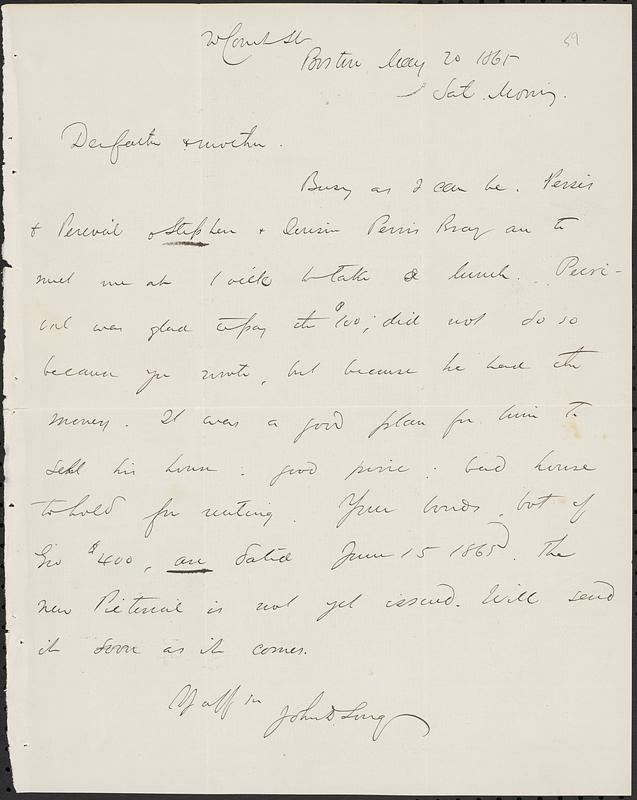 59
Court St
Boston May 20 1865
Sat. Morning.
Dear father & mother.
Busy as I can be. Persis
& Percival & Stephen & Cousin Persis Bray are to
meet me at 1 o'clk to take a lunch. Perci-
val was glad to pay the $100; did not do so
because you wrote, but because he had the
money. It was a good plan for him to
sell his house: good price: bad house
to hold for renting. Your bonds, bot of
Geo $400, are dated June 15 1865). The
new Pictorial is not yet issued. Will send
it soon as it comes.
Yr aff son
John D. Long